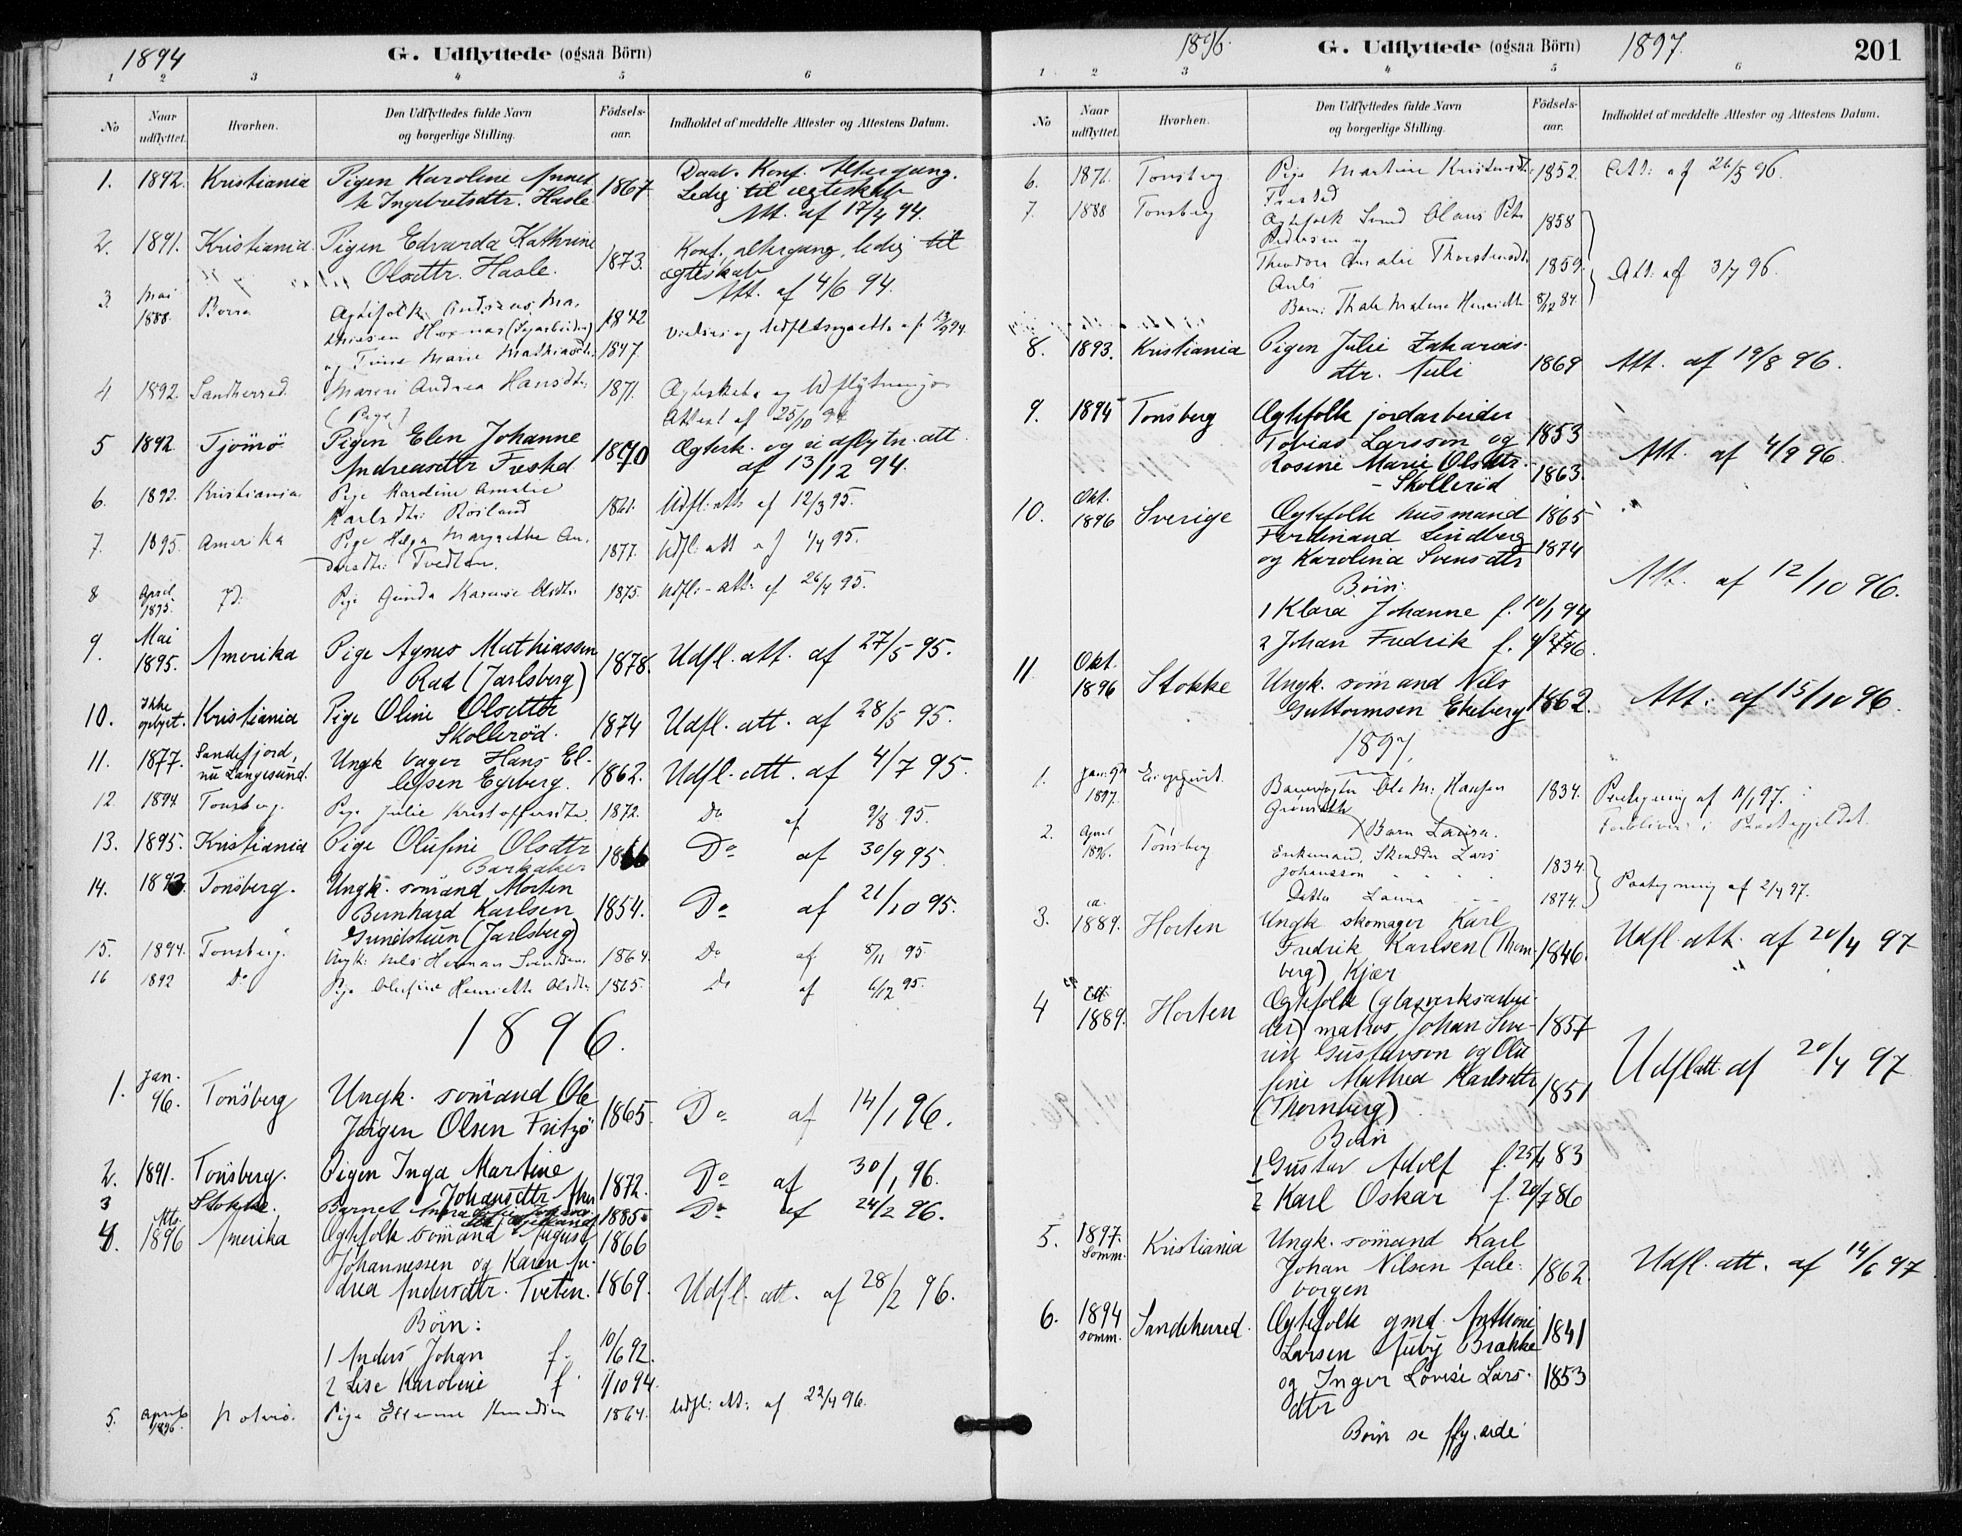 1894
G. Udflyttede (ogsaa Börn)
1 2 3 4 5 6
No
Naar udflyttet.
Hvorhen.
Den Udflyttedes fulde Navn og borgerlige Stilling.
Födsels-aar.
Indholdet af meddelte Attester og Attestens Datum.
1. 1892. Kristiania Pigen Karoline 1867. Daab. Konf. Altergang.
Ingebretsdttr. Hasle. Ledig til ægteskab
Att. af 17/4 94.
2. 1891. Kristiania. Pigen Edvarda Kathrine 1873. Konf. altergang, ledig til
Olsdttr. Hasle. ægteskab
Att. af 4/6 94.
3. Mai 1888. Borre Ægtefolk Andreas Ma-
thiesen 1842
og Marie Mathiasdtr. 1847.
4 1892. Sandherred. Maren Andrea Hansdtr. 1871. Ægteskabs og Udflytnings
(Pige) Attest af 25/10 94
5 1892 Tjömö Pigen Elen Johanne 1870 Ægtesk. og udflytn. att.
Andreasdttr Frested af 13/12 94.
6. 1892. Kristiania Pige Karoline Amalie 1861. Udfl. att. af 12/3 95.
Karlsdtr. Roiland
7. 1895. Amerika Pige Helga Margrethe An- 1877. Udfl. att af 1/4 95.
dersdtr.
8 April 1895. Pige Gunda Olsdtr. 1875. Udfl.- att. af 26/4 95.
9. Mai 1895. Amerika Pige Agnes Mathiassen 1878. Udfl. att. af 27/5 95.
Rad (Jarlsberg)
10. Ikke oplyst. Kristiania Pige Oline Olsdttr 1874 Udfl. att. af 28/5 95.
Skollerød.
11. 1877. Sandefjord, Ungk bager Hans El- 1862. Udfl. att. af 4/7 95.
nu Langesund. lefsen Egeberg.
12. 1894 Tonsberg. Pige Julie Kristoffersdtr. 1872. Do af 9/8 95.
13. 1895. Kristiania Pige Olufine Olsdttr 1866 Do af 30/9 95.
Barkaker
14. 1893. Tonsberg. Ungk. sömand Morten
Bernhard Karlsen 1854. Do af 21/10 95.
(Jarlsberg)
15. 1894. Tonsberg. Ungk. Nels Herman Svendsen 1864. Do af 8/11 95.
16 1892 Do Pige Olufine Henriette Olsdtr 1865. Do af 6/12 95.
1896.
1. Jan. 96. Tonsberg Ungk. sömand Ole
Jörgen Olsen Fritzö 1865. Do af 14/1 96.
2. 1891. Tonsberg. Pigen Inga Martine 1872. Do af 30/1 96.
Johansdttr Aker
3 Stokke. Barnet 1885. Do af 24/2 96.
4. 1896 Amerika Ægtefolk sömand August 1866
Johannessen og Karen An-
drea Andersdttr. Tveten. 1869. Udfl. att. af 28/2 96.
Börn:
1 Anders Johan f. 10/6 92.
2 Lise Karoline f. 1/10 94.
5. April 1896. Pige 1864. Udfl. att. af 22/4 96.
1896.
G. Udflyttede (ogsaa Börn)
1897.
201
1 2 3 4 5 6
No
Naar udflyttet.
Hvorhen.
Den Udflyttedes fulde Navn og borgerlige Stilling.
Födsels-aar.
Indholdet af meddelte Attester og Attestens Datum.
6. 1871. Tonsberg Pige Martine 1852. Att. af 26/5 96.
Frested
7. 1888 Tonsberg Ægtefolk Olaus 1858
Pedersen og
Theodora Amalie Thorstensdtr 1859. Att. af 3/7 96.
Auli
Barn: Thale Malene Henriette 8/12 84.
8. 1893. Kristiania Pigen Julie Zakarias-
dttr. Auli 1869 Att. af 19/8 96.
9. 1894 Tonsberg Ægtefolk jordarbeider
Tobias Larsson og 1853
Rosine Marie Olsdttr. 1863. Att. af 4/9 96.
- Skollerød
10. Okt. 1896 Sverige Ægtefolk husmand 1865
Ferdinand Lindberg
og Karolina Svensdtr 1874
Börn: Att. af 12/10 96.
1 Klara Johanne f. 10/1 94
2 Johan Fredrik f.
11 Okt. 1896 Stokke Ungk. sömand Nils
Guttormsen Ekeberg 1862. Att. af 15/10 96.
1897.
1. Jan. 1897. Ole M. Hansen 1834. Paategning af 11/1 97.
Barn Laura.
2. April 1896. Tönsberg Enkemand, Skredder Lars
Johansson 1834.
Datter Laura 1874. Paategning af 2/4 97.
3. ca. 1889. Horten Ungk skomager Karl
Fredrik Karlsen (Thorn- 1846. Udfl. att. af 20/4 97
berg) Kjær
4 ca 1889. Horten Ægtefolk (glasverksarbei-
der) matros Johan Seve- 1857
rin Gustavson og Olu
fine Mathea Karlsdttr 1851 Udfl att. af 20/4 97
(Thornberg)
Börn
1 Gustav Adolf f. 25/4 83
2 Karl Oskar f. 20/7 86
5. 1897. Somm. Kristiania Ungk. sömand Karl
Johan Nilsen 1862. Udfl. att. af 14/6 97
borgen
6. 1894 somm. Sandeherred. Ægtefolk gmd. Anthoni 1841
Larsen Auby Brække
og Inger Lovise Lars- 1853
dtr
Börn se flg. side